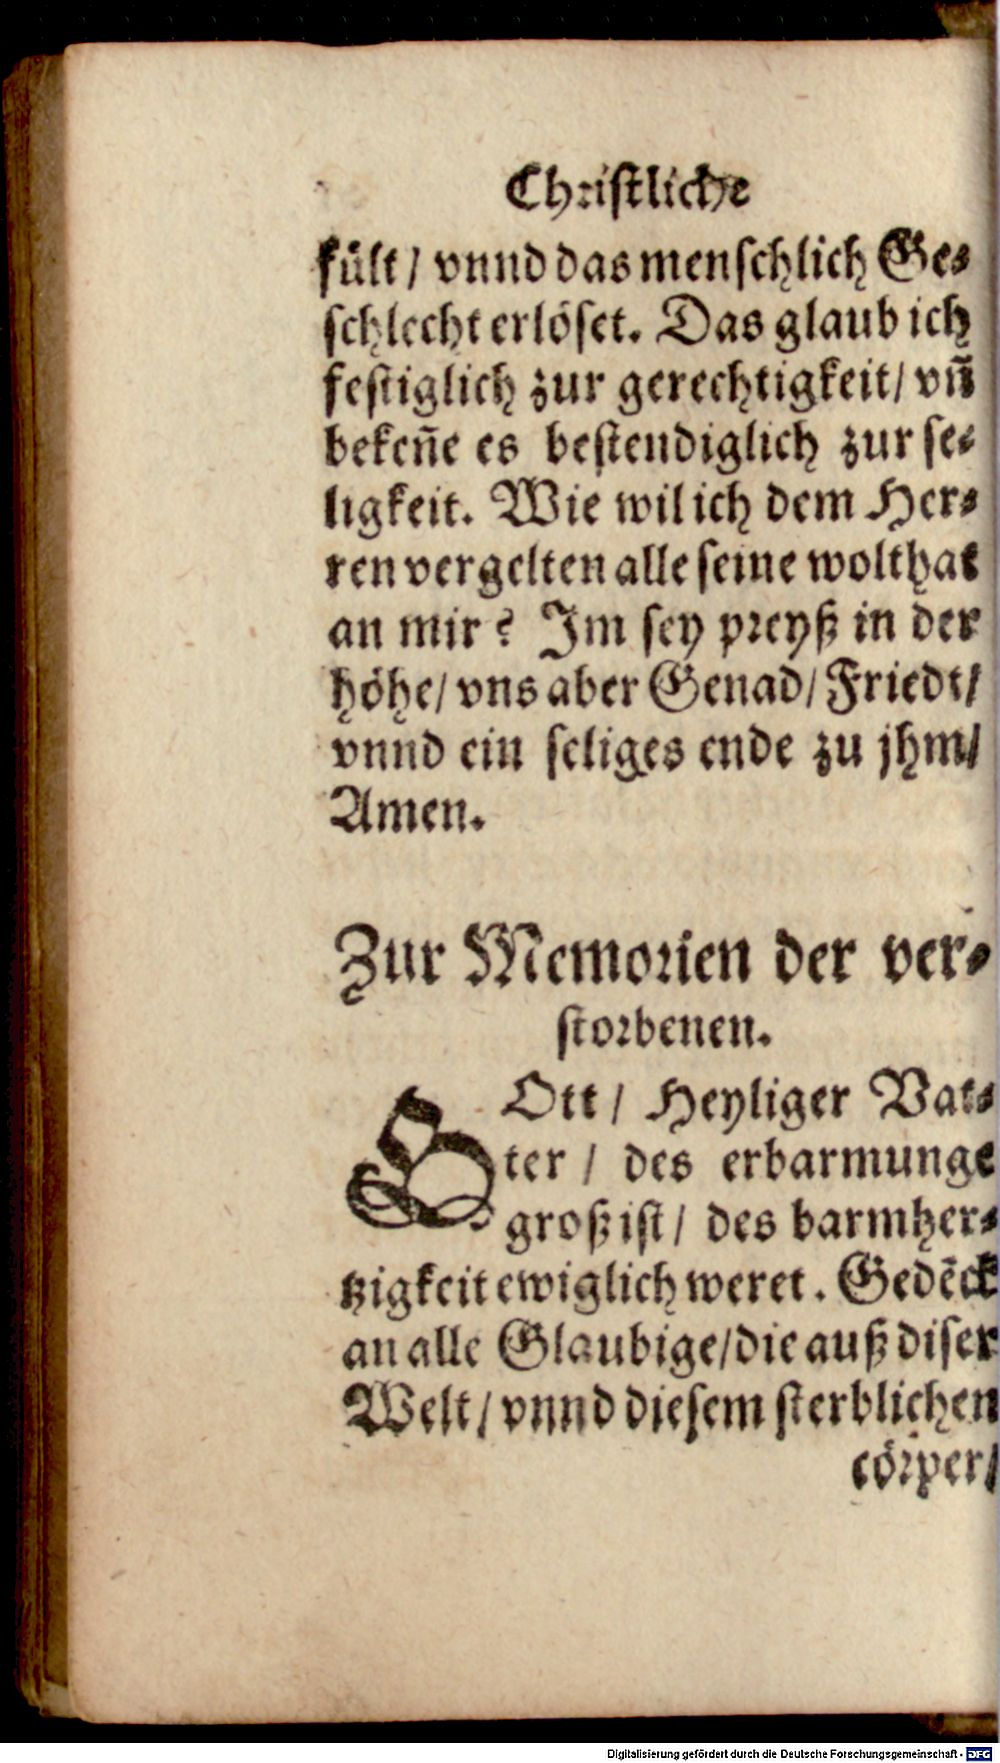 Christliche
fült / vnnd das menschlich Ge-
schlecht erlöset. Das glaub ich
festiglich zur gerechtigkeit / vn̄
beken̄e es bestendiglich zur se-
ligkeit. Wie wil ich dem Her-
ren vergelten alle seine wolthat
an mir? Im sey preyß in der
höhe / vns aber Genad / Friedt /
vnnd ein seliges ende zu jhm /
Amen.
Zur Memorien der ver-
storbenen.
GOtt / Heyliger Vat-
ter / des erbarmunge
groß ist / des barmher-
tzigkeit ewiglich weret. Gedēck
an alle Glaubige / die auß diser
Welt / vnnd diesem sterblichen
cörper /
Digitalisierung gefördert durch die Deutsche Forschungsgemeinschaft - DFG